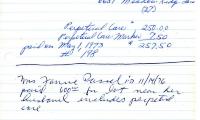 (27)
Perpetual Care 250.00
Perpetual Care Marker 7.50
paid on May 1, 1973 $257.50
# 198
Mrs Fannie Dassel is 11/14/76
paid for lot near her
husband includes perpetual
care